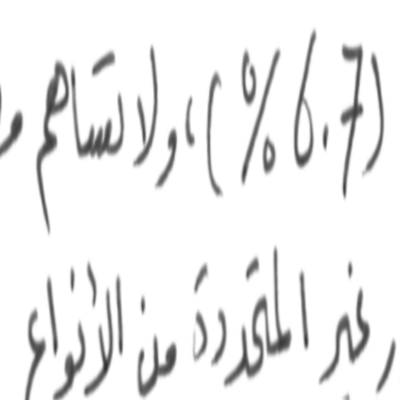 (6.7 %)، ولا تساهم
غير المتجددة من الأنواع